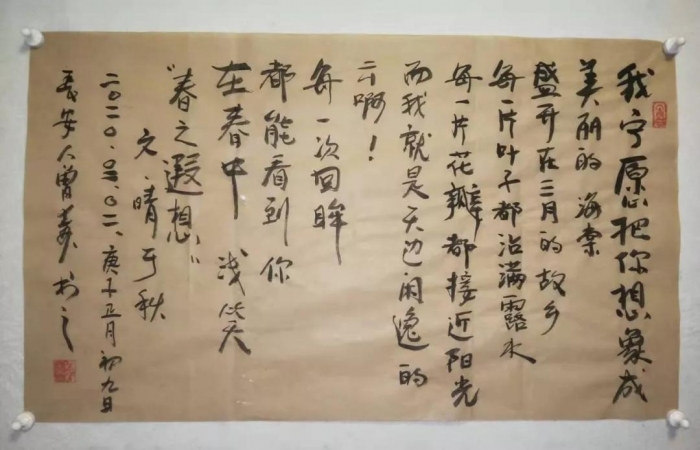 我宁愿把你想象成
美丽的海棠
盛开在三月的故乡
每一片叶子都沾满露水
每一片花瓣都接近阳光
而我就是天边闲逸的
云啊！
每一次回眸
都能看到你
在春中 浅笑
"春之遐想"
文·晴于秋
二〇二〇.〇三.〇二、庚子正月初九日
长安人曾